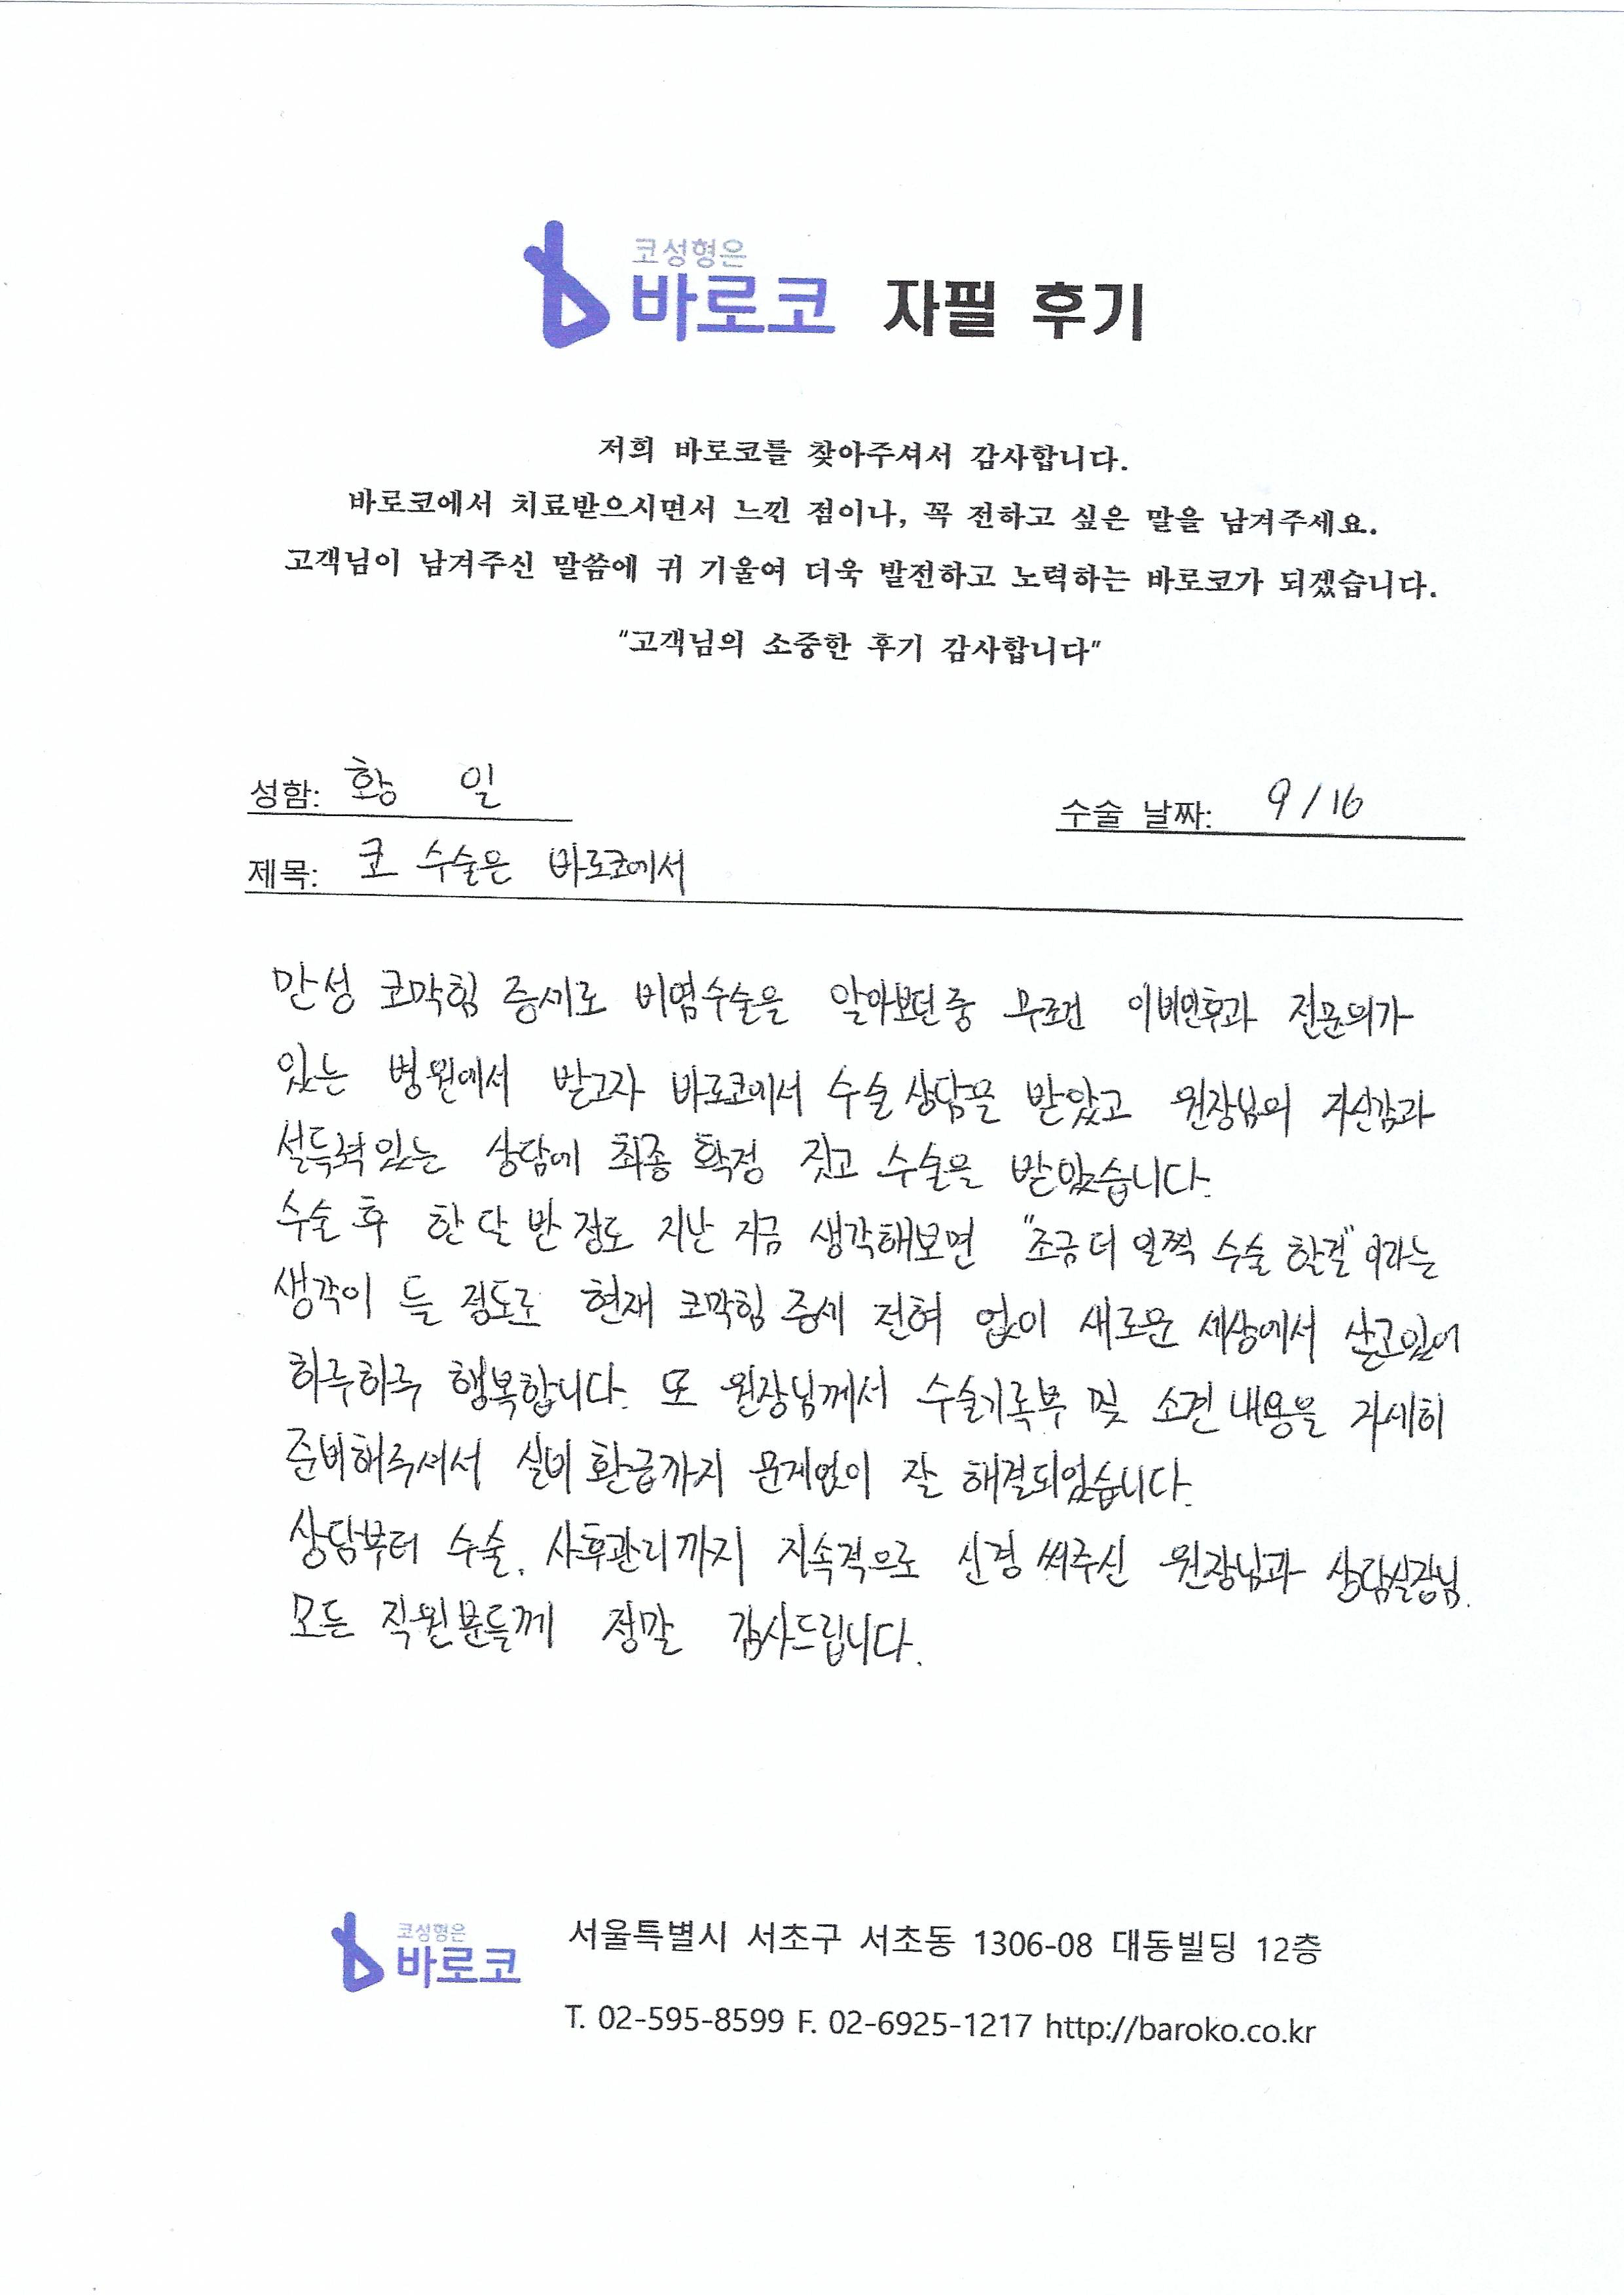 코성형은
바로코 자필 후기
저희 바로코를 찾아주셔서 감사합니다.
바로코에서 치료받으시면서 느낀 점이나, 꼭 전하고 싶은 말을 남겨주세요.
고객님이 남겨주신 말씀에 귀 기울여 더욱 발전하고 노력하는 바로코가 되겠습니다.
"고객님의 소중한 후기 감사합니다"
성함: 황 일 수술 날짜: 9/16
제목: 코 수술은 바로코에서
만성 코막힘 증세로 비염수술을 알아보던중 무조건 이비인후과 전문의가
있는 병원에서 받고자 바로코에서 수술 상담을 받았고 원장님의 자신감과
설득력있는 상담에 최종 확정 짓고 수술을 받았습니다.
수술 후 한 달 반 정도 지난 지금 생각해보면 "조금 더 일찍 수술 할걸" 이라는
생각이 들 정도로 현재 코막힘 증세 전혀 없이 새로운 세상에서 살고있어
하루하루 행복합니다. 또 원장님께서 수술기록부 및 소견 내용을 자세히
준비해주셔서 실비 환급까지 문제없이 잘 해결되었습니다.
상담부터 수술, 사후관리까지 지속적으로 신경 써주신 원장님과 상담실장님,
모든 직원분들께 정말 감사드립니다.
코성형은
바로코
서울특별시 서초구 서초동 1306-08 대동빌딩 12층
T. 02-595-8599 F. 02-6925-1217 http://baroko.co.kr